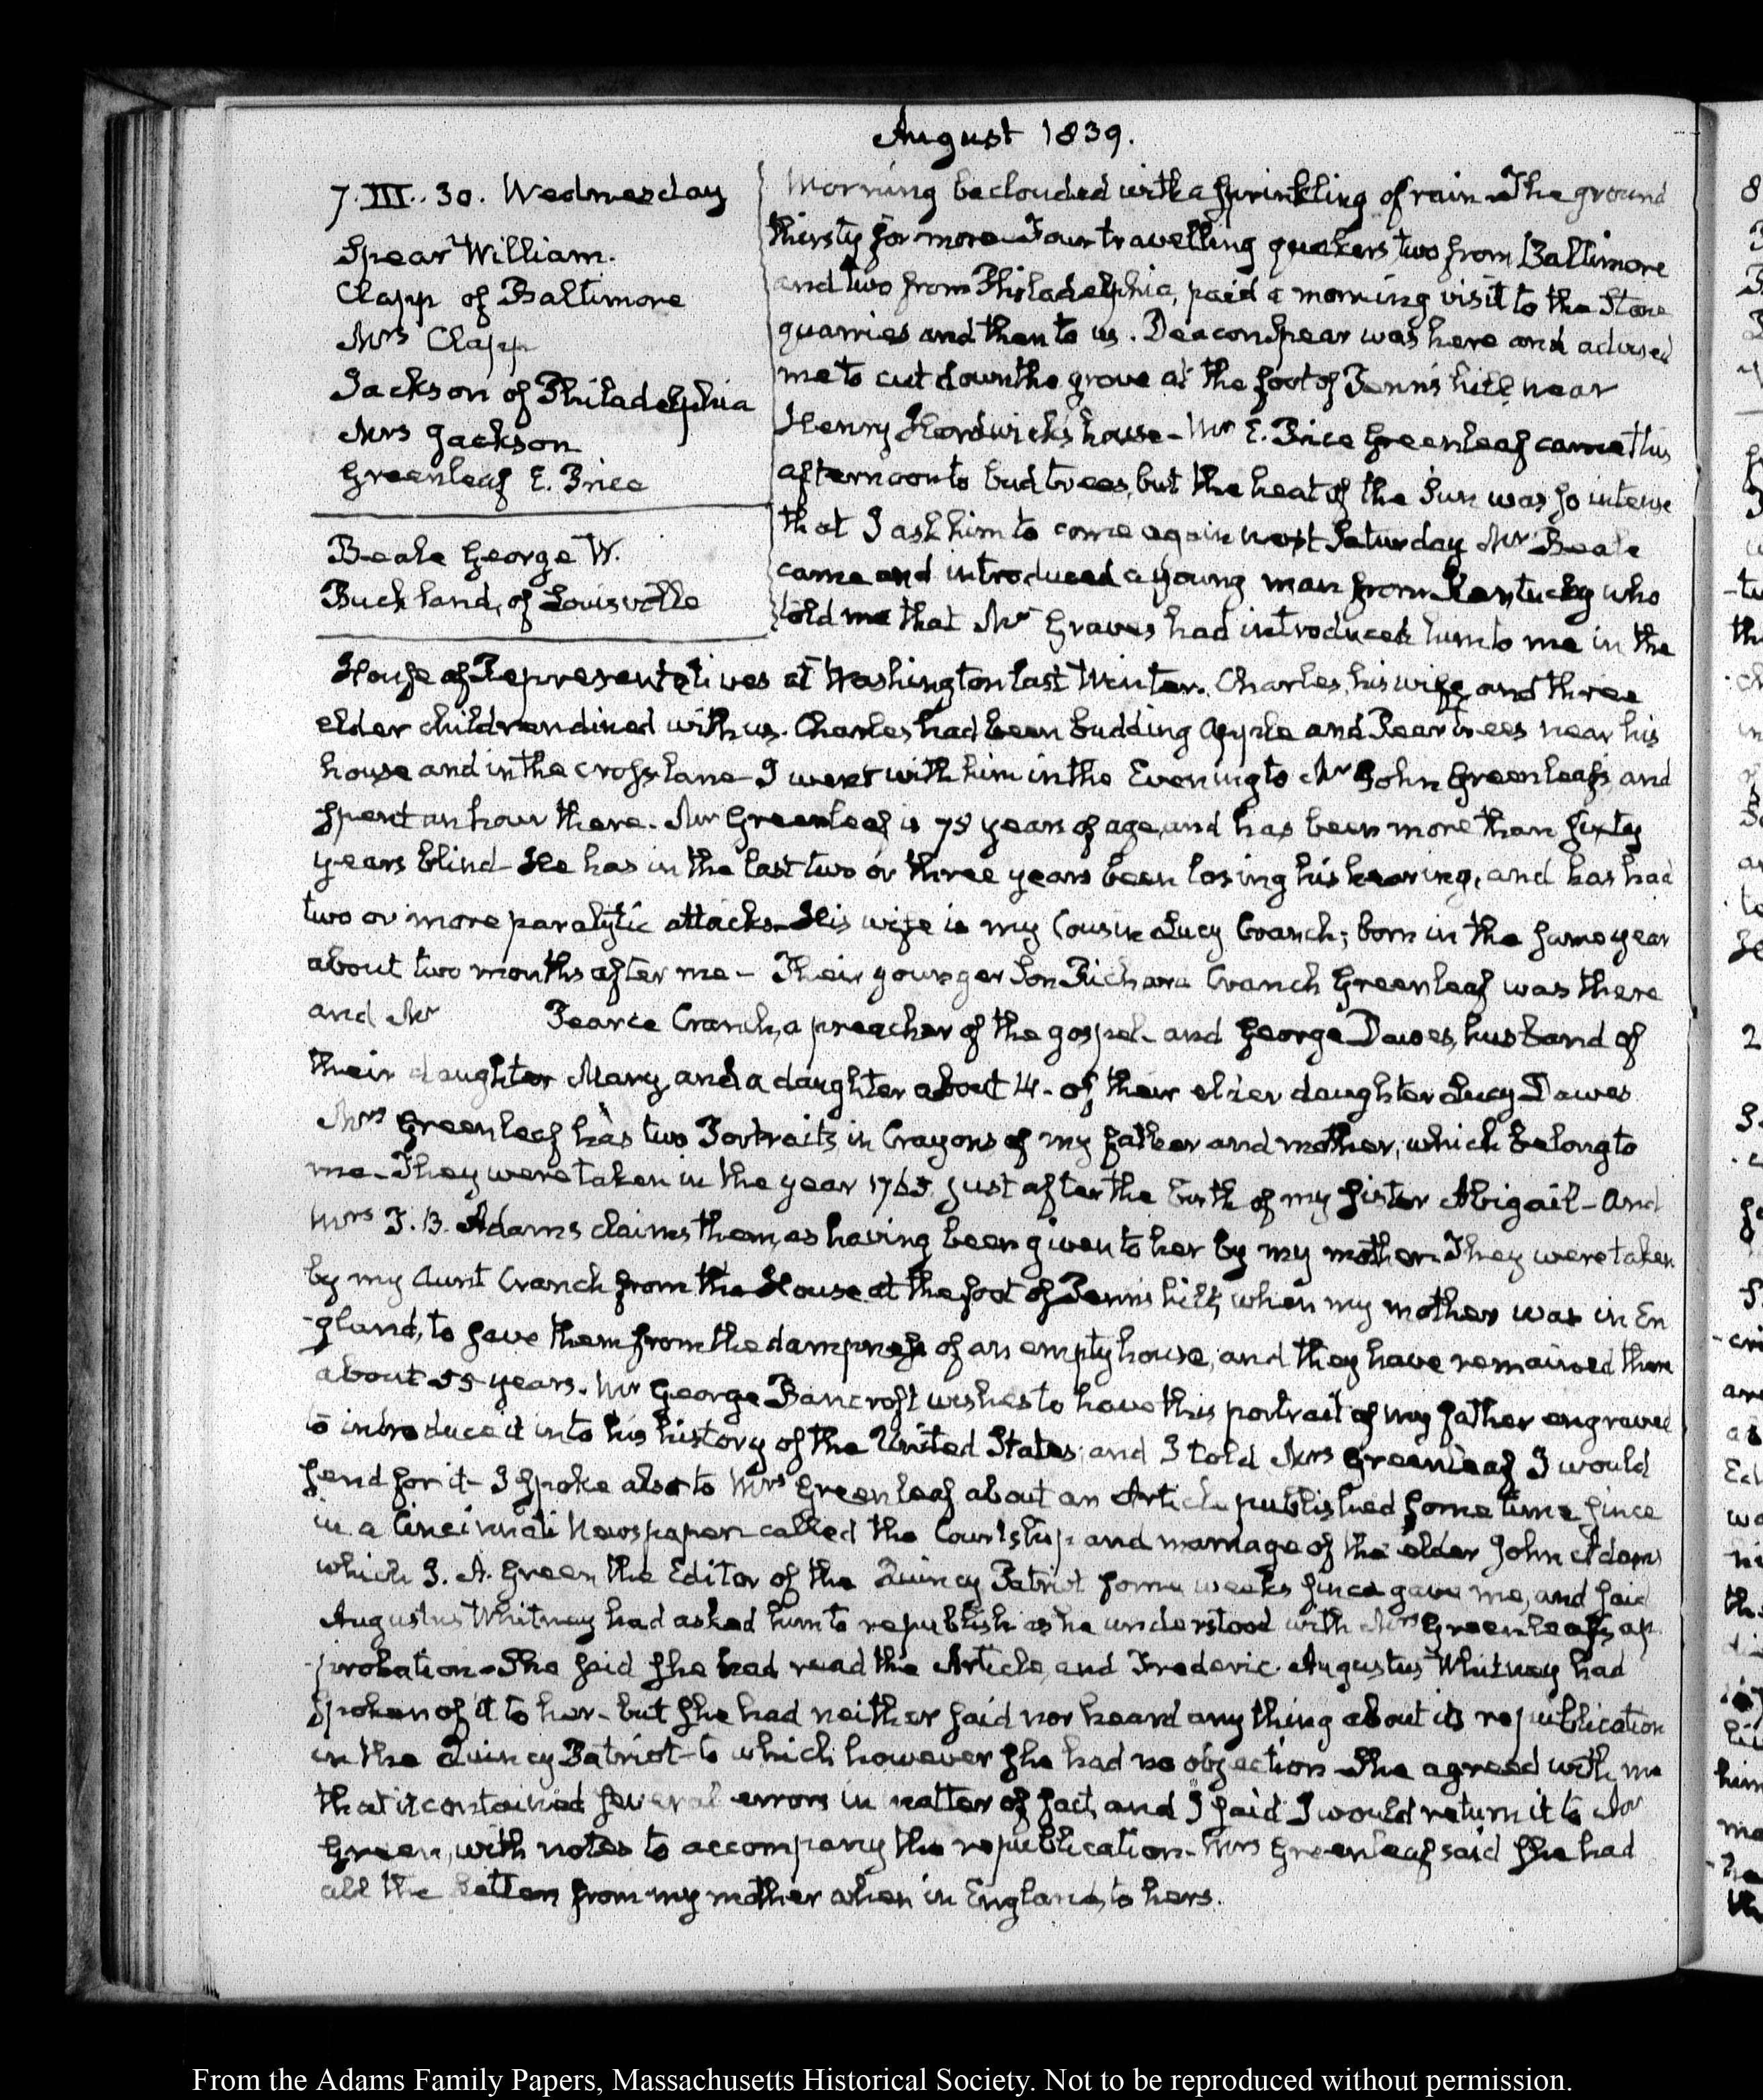 August 1839.
7. III. 30. Wednesday
Spear William.
Clapp of Baltimore
Mrs Clapp
Jackson of Philadelphia
Mrs Jackson
Greenleaf E. Price
Beale George W.
Buckland, of Louisville
Morning beclouded with a sprinkling of rain. The ground
thirsty for more. Four travelling quakers two from Baltimore
and two from Philadelphia, paid a morning visit to the Stone
quarries and then to us. Deacon Spear was here and advised
me to cut down the grove at the foot of Penn's hill, near
Henry Hardwick's house - Mr E. Price Greenleaf came this
afternoon to bud trees, but the heat of the Sun was so intense
that I ask him to come again next Saturday Mr Beale
came and introduced a young man from Kentucky who
told me that Mr Graves had introduced him to me in the
House of Representatives at Washington last Winter. Charles, his wife, and three
elder children dined with us. Charles had been budding apple and Pear trees near his
house and in the cross lane - I went with him in the Evening to Mr John Greenleaf's, and
spent an hour there. Mr Greenleaf is 75 years of age, and has been more than sixty
years blind - He has in the last two or three years been losing his hearing, and has had
two or more paralytic attacks - His wife is my Cousin Lucy Cranch; born in the same year
about two months after me - Their younger Son Richard Cranch Greenleaf was there
and Mr Pearce Cranch, a preacher of the gospel - and George Dawes, husband of
their daughter Mary, and a daughter about 14 - of their elder daughter Lucy Dawes
Mrs Greenleaf has two Portraits in Crayons of my father and mother, which belong to
me - They were taken in the year 1765 just after the birth of my sister Abigail - and
Mrs T. B. Adams claims them, as having been given to her by my mother. They were taken
by my Aunt Cranch from the House at the foot of Penn's hill, when my mother was in En
-gland, to save them from the dampness of an empty house, and they have remained there
about 55 years. Mr George Bancroft wishes to have this portrait of my father engraved
to introduce it into his history of the United States; and I told Mrs Greenleaf I would
send for it - I spoke also to Mrs Greenleaf about an Article published some time since
in a Cincinnati Newspaper called the Courtship and marriage of the elder John Adams
which J. A. Green the Editor of the Quincy Patriot some weeks since gave me, and said
Augustus Whitney had asked him to republish as he understood with Mrs Greenleaf's ap
-probation - She said she had read the Article, and Frederic Augustus Whitney had
spoken of it to her - but she had neither said nor heard any thing about its republication
in the Quincy Patriot - to which however she had no objection - She agreed with me
that it contained several errors in matter of fact, and I said I would return it to Mr
Green, with notes to accompany the republication - Mrs Greenleaf said she had
all the Letters from my mother when in England, to hers.
From the Adams Family Papers, Massachusetts Historical Society. Not to be reproduced without permission.